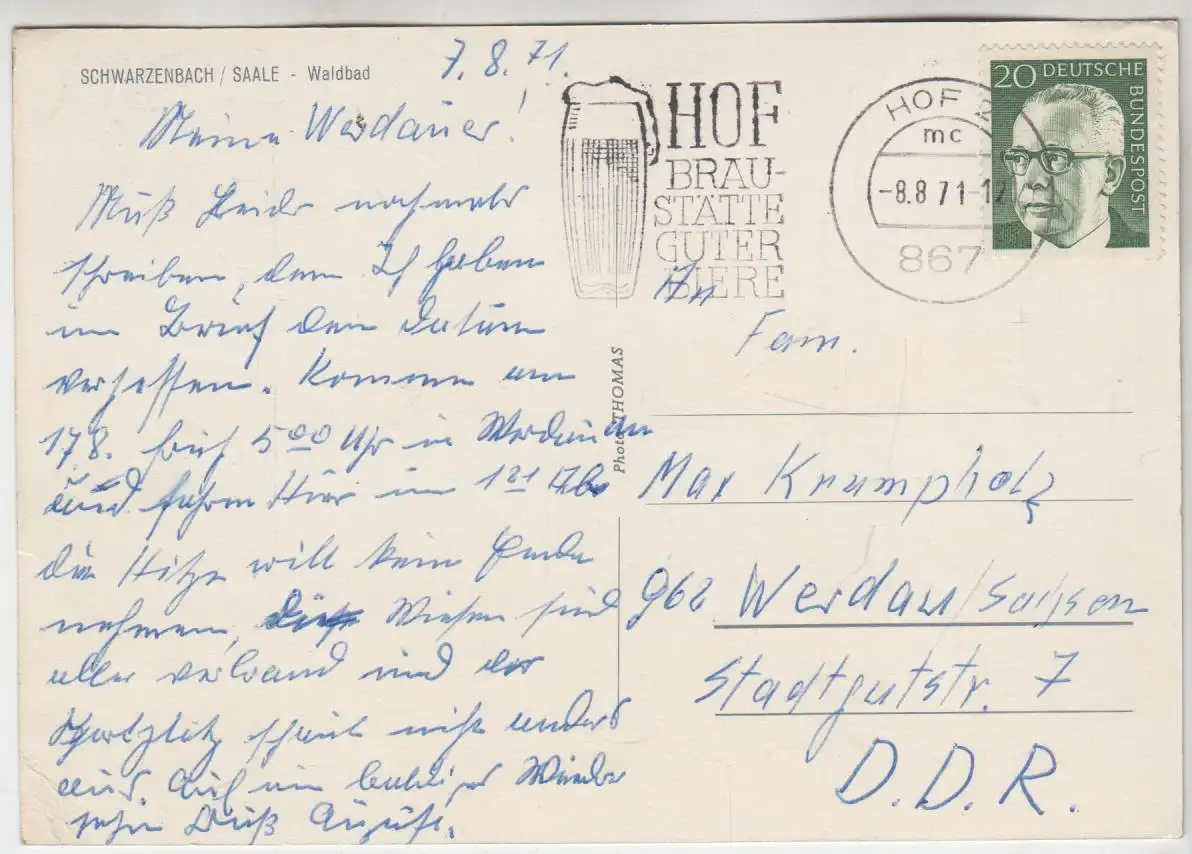 SCHWARZENBACH / SAALE - Waldbad
7.8.71.
Meine Werdauer!
Muß Leider nochmals
schreiben, denn Ich haben
im Brief den datum
vergessen. Komme am
17 8. früh 5 00 Uhr in Werdau an
und fahren Hier im 1 21 Ab
die Hitze will kein Ende
nehmen, Wiesen sind
alles verbrand und der
scheint nicht anders
aus. Auf ein baldiges Wieder
sehn
HOF
BRAU-
STÄTTE
GUTER
BIERE
HOF 2
mc
-8.8 71-12
867
20 DEUTSCHE
BUNDESPOST
Photo: THOMAS
An
Fam.
Max Krumpholz
962 Werdau/Sachsen
Stadtgutstr. 7
D.D.R.